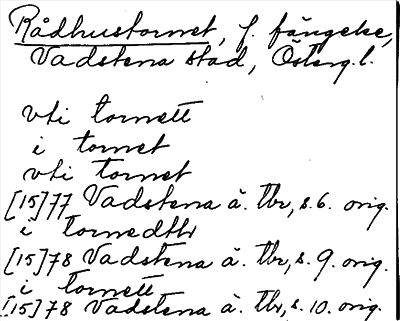 Rådhustornet, f. fängelse,
Vadstena stad, Österg.l.
vti tornett
i tornet
vti tornet
[15]77 Vadstena ä. Tbr, s. 6. orig.
i tornedthr
[15]78 Vadstena ä. Tbr, s. 9. orig.
i tornett
[15]78 Vadstena ä. Tbr, s. 10. orig.